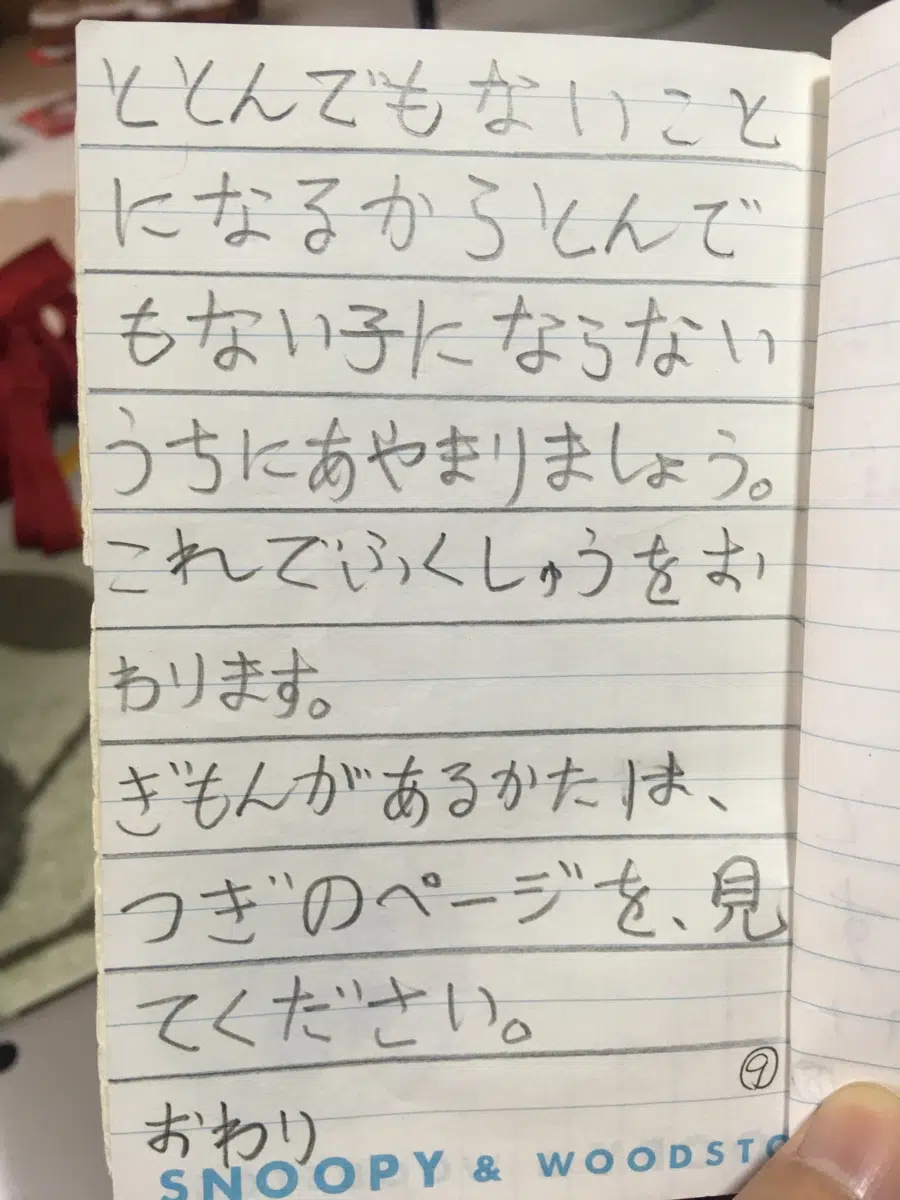 ととんでもないこと
になるからとんで
もない子にならない
うちにあやまりましょう。
これでふくしゅうをお
わります。
ぎもんがあるかたは、
つぎのページを、見
てください。
⑨
おわり
SNOOPY & WOODSTO